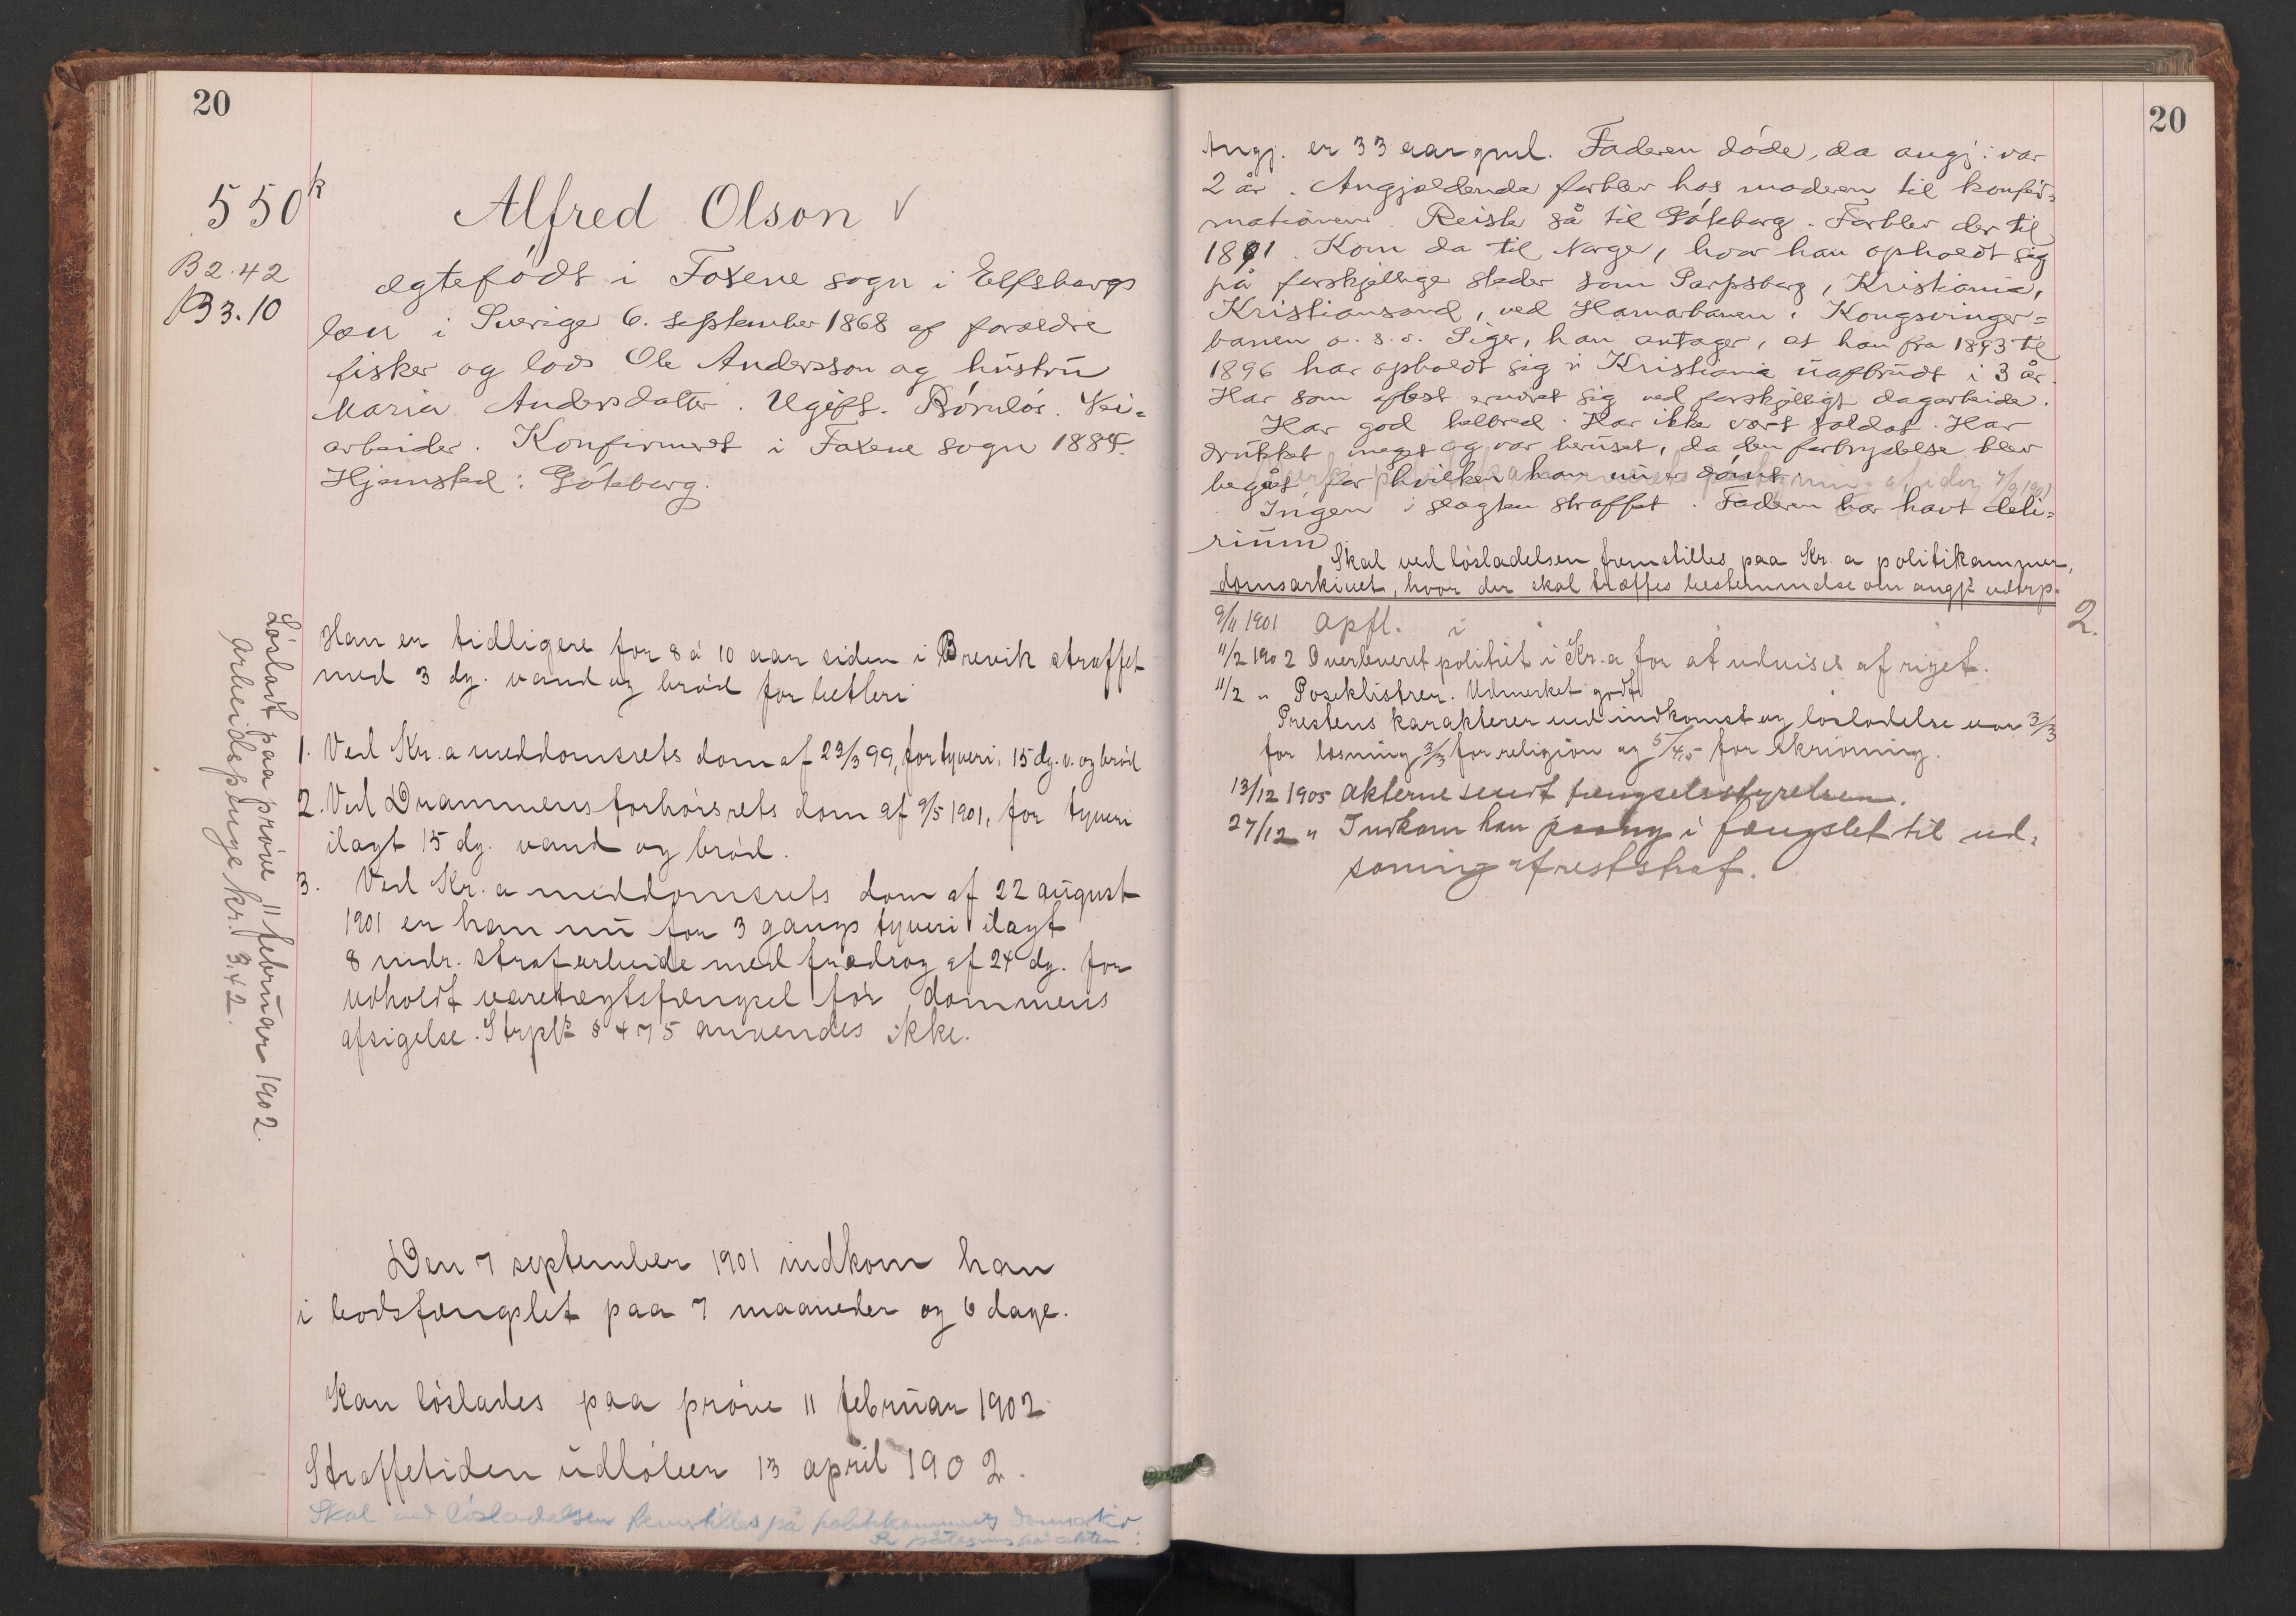 20
550 k
Alfred Olson √
B 2.42
B 3.10
ægtefødt i Foxene sogn i Elfsborgs
læn i Sverige 6. september 1868 af forældre
fisker og lods Ole Andersson og hustru
Maria Andersdatter. Ugift. Børnløs. Vei=
arbeider. Konfirmeret i Foxene sogn 1884.
Hjemsted: Göteborg.
Han er tidligere for 8 à 10 aar siden i Brevik straffet
med 3 dg. vand og brød for betleri
1. Ved Kr.a meddomsrets dom af 29/3 99, for tyveri, 15 dg. v. og brød
2. Ved Drammens forhørsrets dom af 9/5 1901, for tyveri
ilagt 15 dg. vand og brød.
3. Ved Kr.a meddomsrets dom af 22 august
1901 er han nu for 3 gangs tyveri ilagt
8 mdr. strafarbeide med fradrag af 24 dg. for
udholdt varetægtsfængsel før dommens
afsigelse. Strpl. § 475 anvendes ikke.
Løsladt paa prøve 11 februar 1902.
Arbeidspenge kr. 3.42.
Den 7 september 1901 indkom han
i bodsfængslet paa 7 maaneder og 6 dage.
Kan løslades paa prøve 11 februar 1902
Straffetiden udløber 13 april 1902.
Skal ved løsladelsen fremstilles på politikammerets domsarkiv
Se påtegning på akten.
20
Angj. er 33 aar gml. Faderen døde, da angj: var
2 år. Angjældende forblev hos moderen til konfir=
mationen. Reiste så til Göteborg. Forblev der til
1891. Kom da til Norge, hvor han opholdt sig
på forskjellige steder som Sarpsborg, Kristiania,
Kristiansand, ved Hamarbanen, Kongsvinger=
banen o. s. v. Siger, han antager, at han fra 1893 til
1896 har opholdt sig i Kristiania uafbrudt i 3 år.
Har som oftest ernæret sig ved forskjelligt dagarbeide.
Har god helbred. Har ikke vært soldat. Har
drukket meget og var beruset, da den forbrydelse blev
begået, for hvilken han nu er dømt.
Ingen i slægten straffet. Faderen har havt deli=
rium.
Skal ved løsladelsen fremstilles paa Kr.a politikammer,
domsarkivet, hvor der skal træffes bestemmelse om angjs udtrp.
9/11 1901 Opfl. i 2.
11/2 1902 Overleveret politiet i Kr.a for at udvises af riget.
11/2 " Poseklistrer. Udmerket godt
Prestens karakterer ved indkomst og løsladelse var 3/3
for læsning 3/3 for religion og 5/4,5 for skrivning.
13/12 1905 Akterne sendt fængselsstyrelsen.
27/12 " Indkom han paany i fængslet til ud=
soning af reststraf.